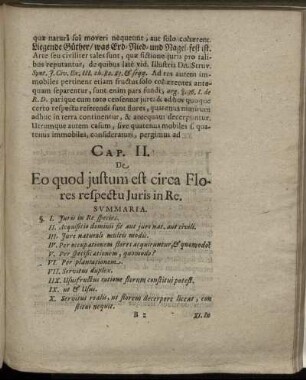 quæ naturâ suâ moveri nequeunt, aut solo cohærent
Liegende Güther / was Erd-Nied- und Nagel-fest ist.
Arte seu civiliter tales sunt, quæ fictione juris pro talibus reputantur, de quibus latè vid. Illustris Dn. Struv.
Synt. J. Civ. Ex. III. th. &c. &c. & seqq. Ad res autem immobiles pertinent etiam fructus solo cohærentes antequam separentur, sunt enim pars fundi, arg.
R. D. parique cum toto censentur jure: & ad hos quoque
certo respectu referendi sunt flores, quatenus nimirum
adhuc in terra continentur, & antequam decerpantur.
Utrumque autem casum, sive quatenus mobiles s. quatenus immobiles, consideramus, pergimus ad
CAP. II.
De
Eo quod justum est circa Flores respectu Juris in Re.
SUMMARIA.
§. I. Juris in Re species.
II. Acquisitio dominii fit aut jure nat. aut civili.
III. Jure naturali multis modis.
IV. Per occupationem flores acquiruntur, & quomodo?
V. Per specificationem, quomodo?
VI. Per plantationem.
VII. Servitus duplex.
IIX. Ususfructus ratione florum constitui potest.
IX. ut & Usus.
X. Servitus realis, ut florem decerpere liceat, constitui nequit.
B 2
XI. In